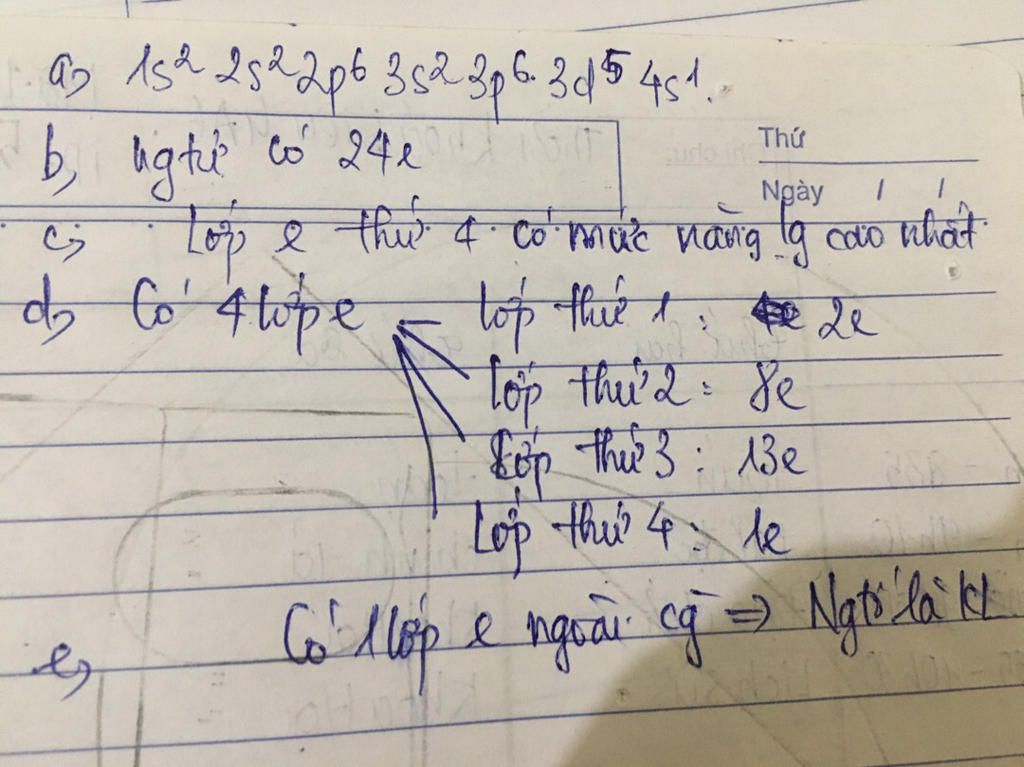 a, 1s² 2s² 2p⁶ 3s² 3p⁶ 3d⁵ 4s¹.
b, ngtử có 24e
Thứ
Ngày / /
c, Lớp e thứ 4 có mức năng lg cao nhất
d, Có 4 lớp e lớp thứ 1 : 2e
lớp thứ 2 : 8e
Lớp thứ 3 : 13e
Lớp thứ 4 : 1e
e, Có 1 lớp e ngoài cg ⇒ Ngtố là kl